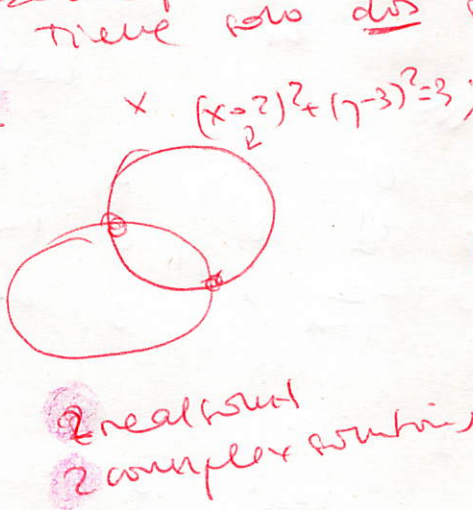 Tieve solo dos
x (x-2)²+(y-3)²=3;
2
2 real
2 complex solutions